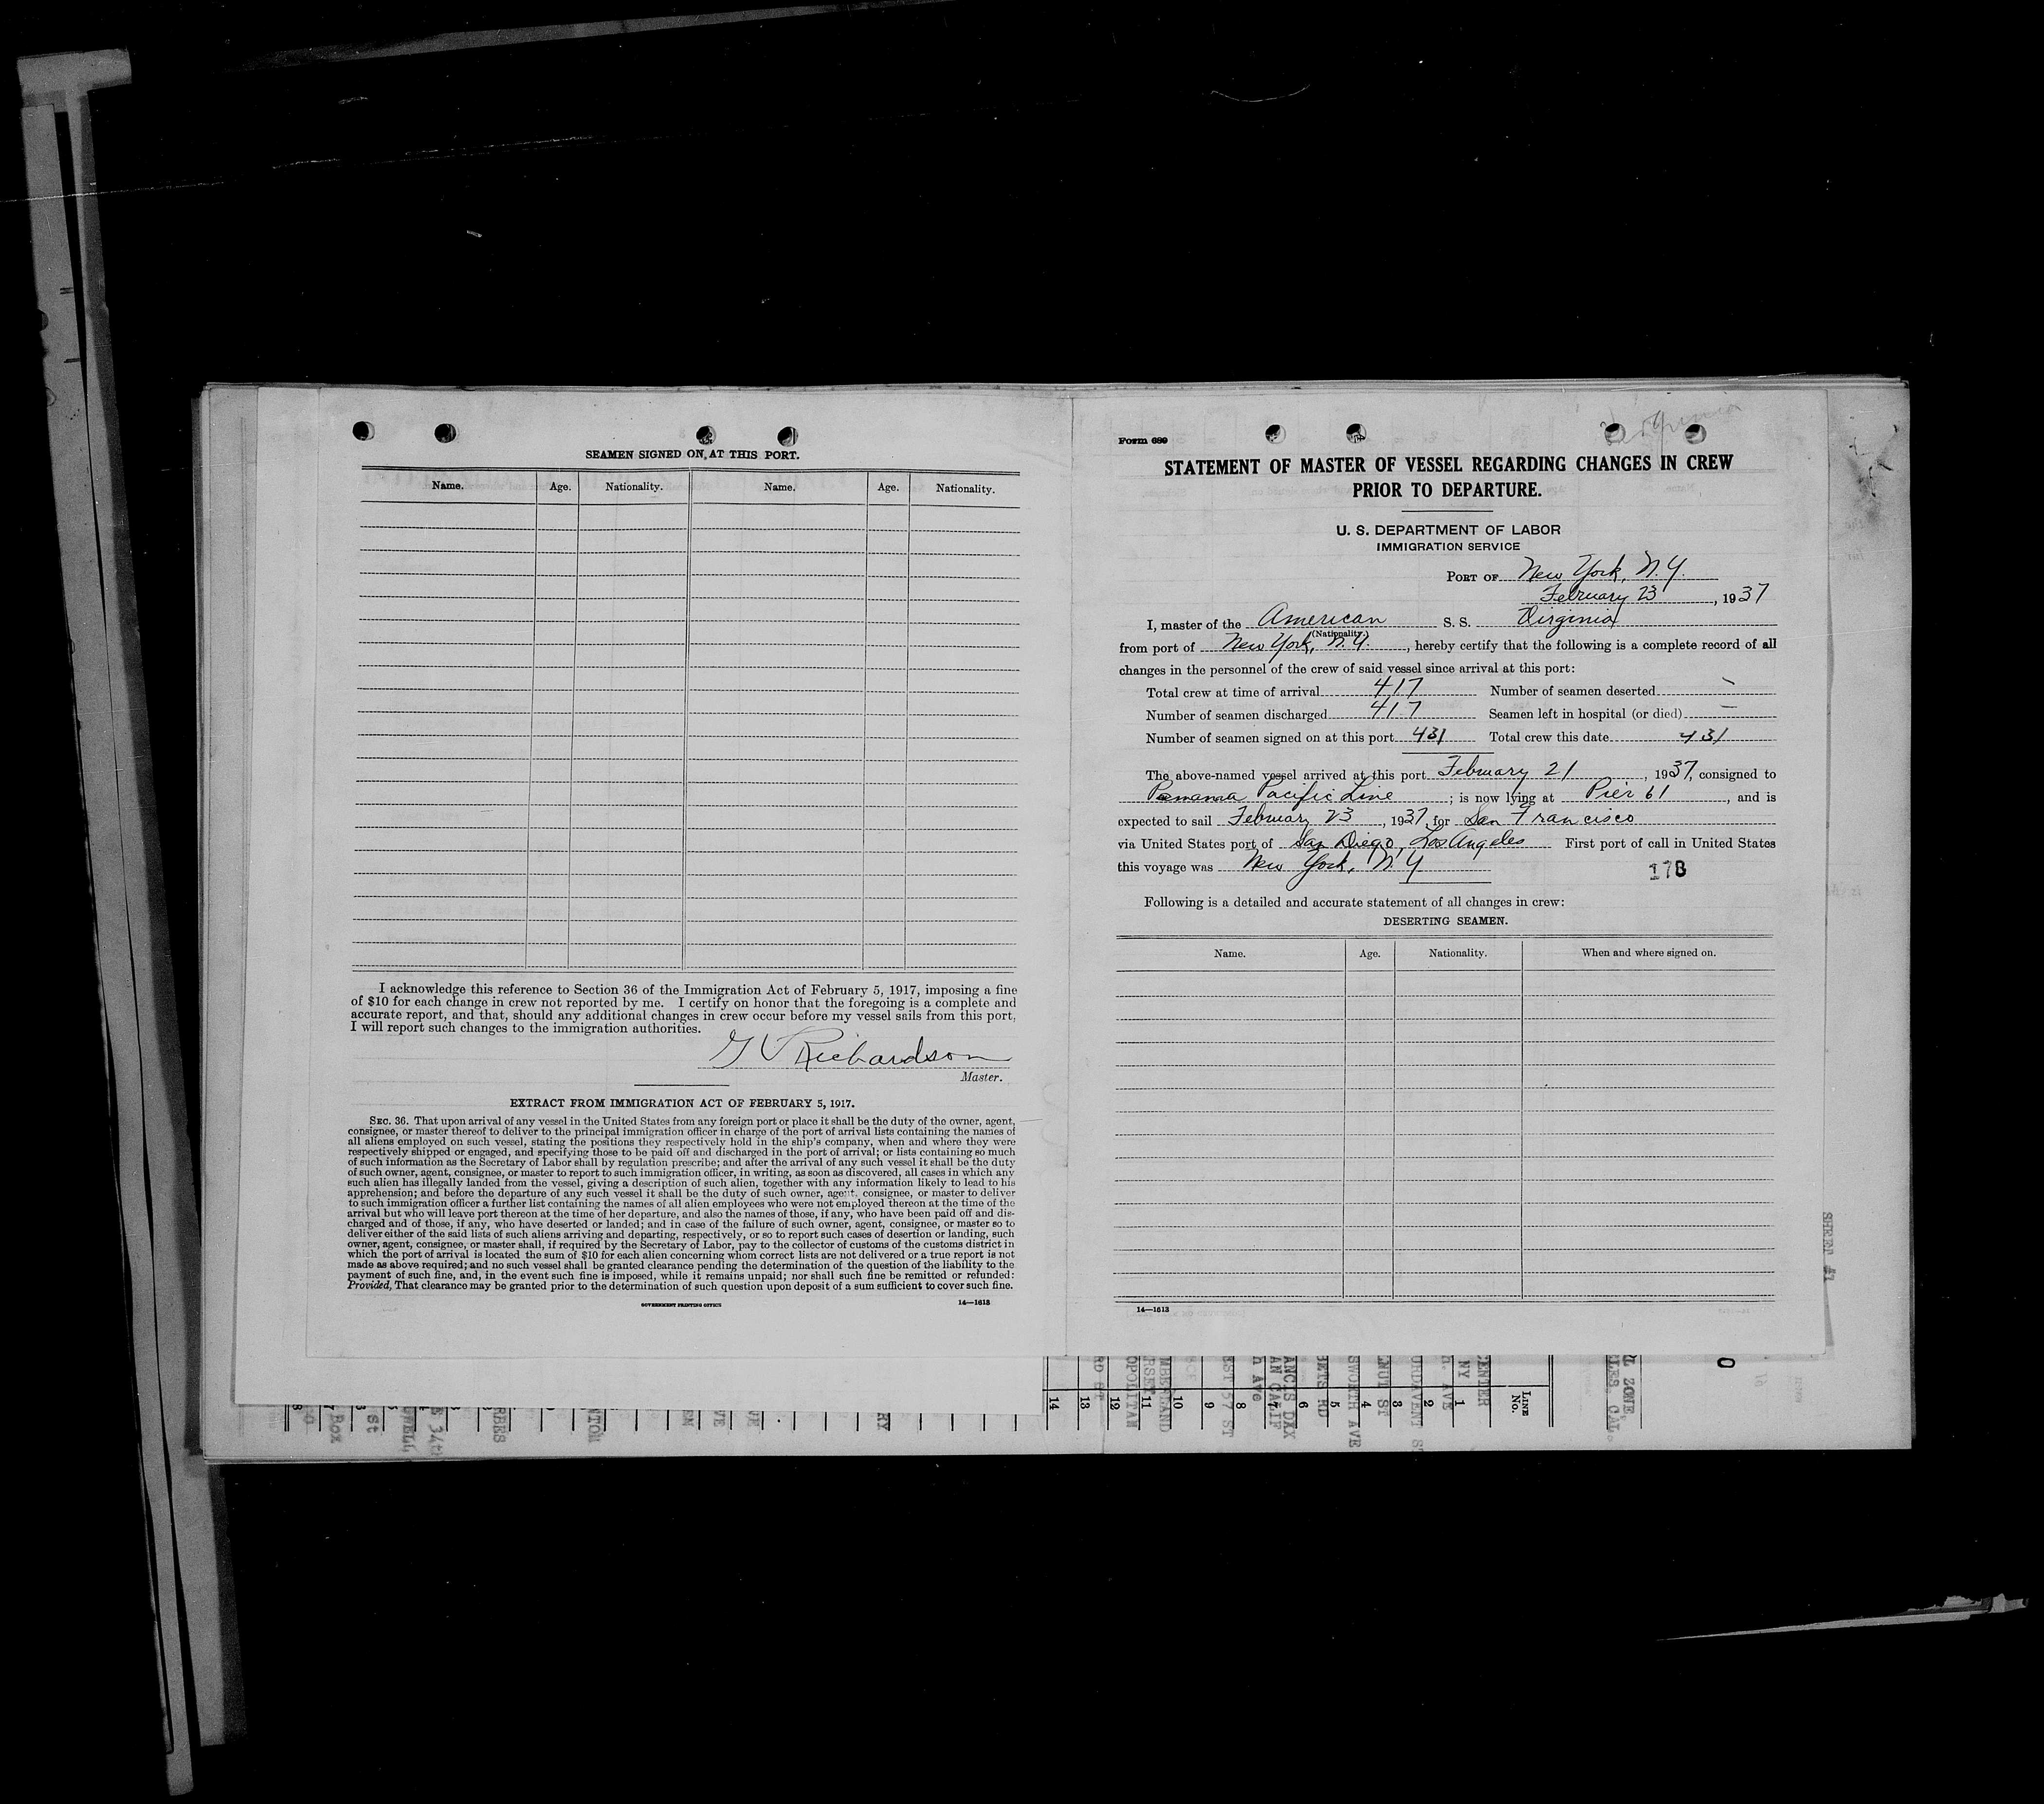 SEAMEN SIGNED ON AT THIS PORT.
Name. Age. Nationality. Name. Age. Nationality.
I acknowledge this reference to Section 36 of the Immigration Act of February 5, 1917, imposing a fine
of $10 for each change in crew not reported by me. I certify on honor that the foregoing is a complete and
accurate report, and that, should any additional changes in crew occur before my vessel sails from this port,
I will report such changes to the immigration authorities.
G V Richardson
Master.
EXTRACT FROM IMMIGRATION ACT OF FEBRUARY 5, 1917.
SEC. 36. That upon arrival of any vessel in the United States from any foreign port or place it shall be the duty of the owner, agent,
consignee, or master thereof to deliver to the principal immigration officer in charge of the port of arrival lists containing the names of
all aliens employed on such vessel, stating the positions they respectively hold in the ship's company, when and where they were
respectively shipped or engaged, and specifying those to be paid off and discharged in the port of arrival; or lists containing so much
of such information as the Secretary of Labor shall by regulation prescribe; and after the arrival of any such vessel it shall be the duty
of such owner, agent, consignee, or master to report to such immigration officer, in writing, as soon as discovered, all cases in which any
such alien has illegally landed from the vessel, giving a description of such alien, together with any information likely to lead to his
apprehension; and before the departure of any such vessel it shall be the duty of such owner, agent, consignee, or master to deliver
to such immigration officer a further list containing the names of all alien employees who were not employed thereon at the time of the
arrival but who will leave port thereon at the time of her departure, and also the names of those, if any, who have been paid off and dis-
charged and of those, if any, who have deserted or landed; and in case of the failure of such owner, agent, consignee, or master so to
deliver either of the said lists of such aliens arriving and departing, respectively, or so to report such cases of desertion or landing, such
owner, agent, consignee, or master shall, if required by the Secretary of Labor, pay to the collector of customs of the customs district in
which the port of arrival is located the sum of $10 for each alien concerning whom correct lists are not delivered or a true report is not
made as above required; and no such vessel shall be granted clearance pending the determination of the question of the liability to the
payment of such fine, and, in the event such fine is imposed, while it remains unpaid; nor shall such fine be remitted or refunded:
Provided, That clearance may be granted prior to the determination of such question upon deposit of a sum sufficient to cover such fine.
GOVERNMENT PRINTING OFFICE 14—1613
Virginia
Form 689
STATEMENT OF MASTER OF VESSEL REGARDING CHANGES IN CREW
PRIOR TO DEPARTURE.
U. S. DEPARTMENT OF LABOR
IMMIGRATION SERVICE
PORT OF New York, N.Y.
February 23, 1937
I, master of the American S. S. Virginia
(Nationality.)
from port of New York, N.Y., hereby certify that the following is a complete record of all
changes in the personnel of the crew of said vessel since arrival at this port:
Total crew at time of arrival 417 Number of seamen deserted -
Number of seamen discharged 417 Seamen left in hospital (or died) -
Number of seamen signed on at this port 431 Total crew this date 431
The above-named vessel arrived at this port February 21, 1937, consigned to
Panama Pacific Line; is now lying at Pier 61, and is
expected to sail February 23, 1937, for San Francisco
via United States port of San Diego, Los Angeles First port of call in United States
this voyage was New York, N.Y
178
Following is a detailed and accurate statement of all changes in crew:
DESERTING SEAMEN.
Name. Age. Nationality. When and where signed on.
14—1613
LINE No.
1 2 3 4 5 6 7 8 9 10 11 12 13 14